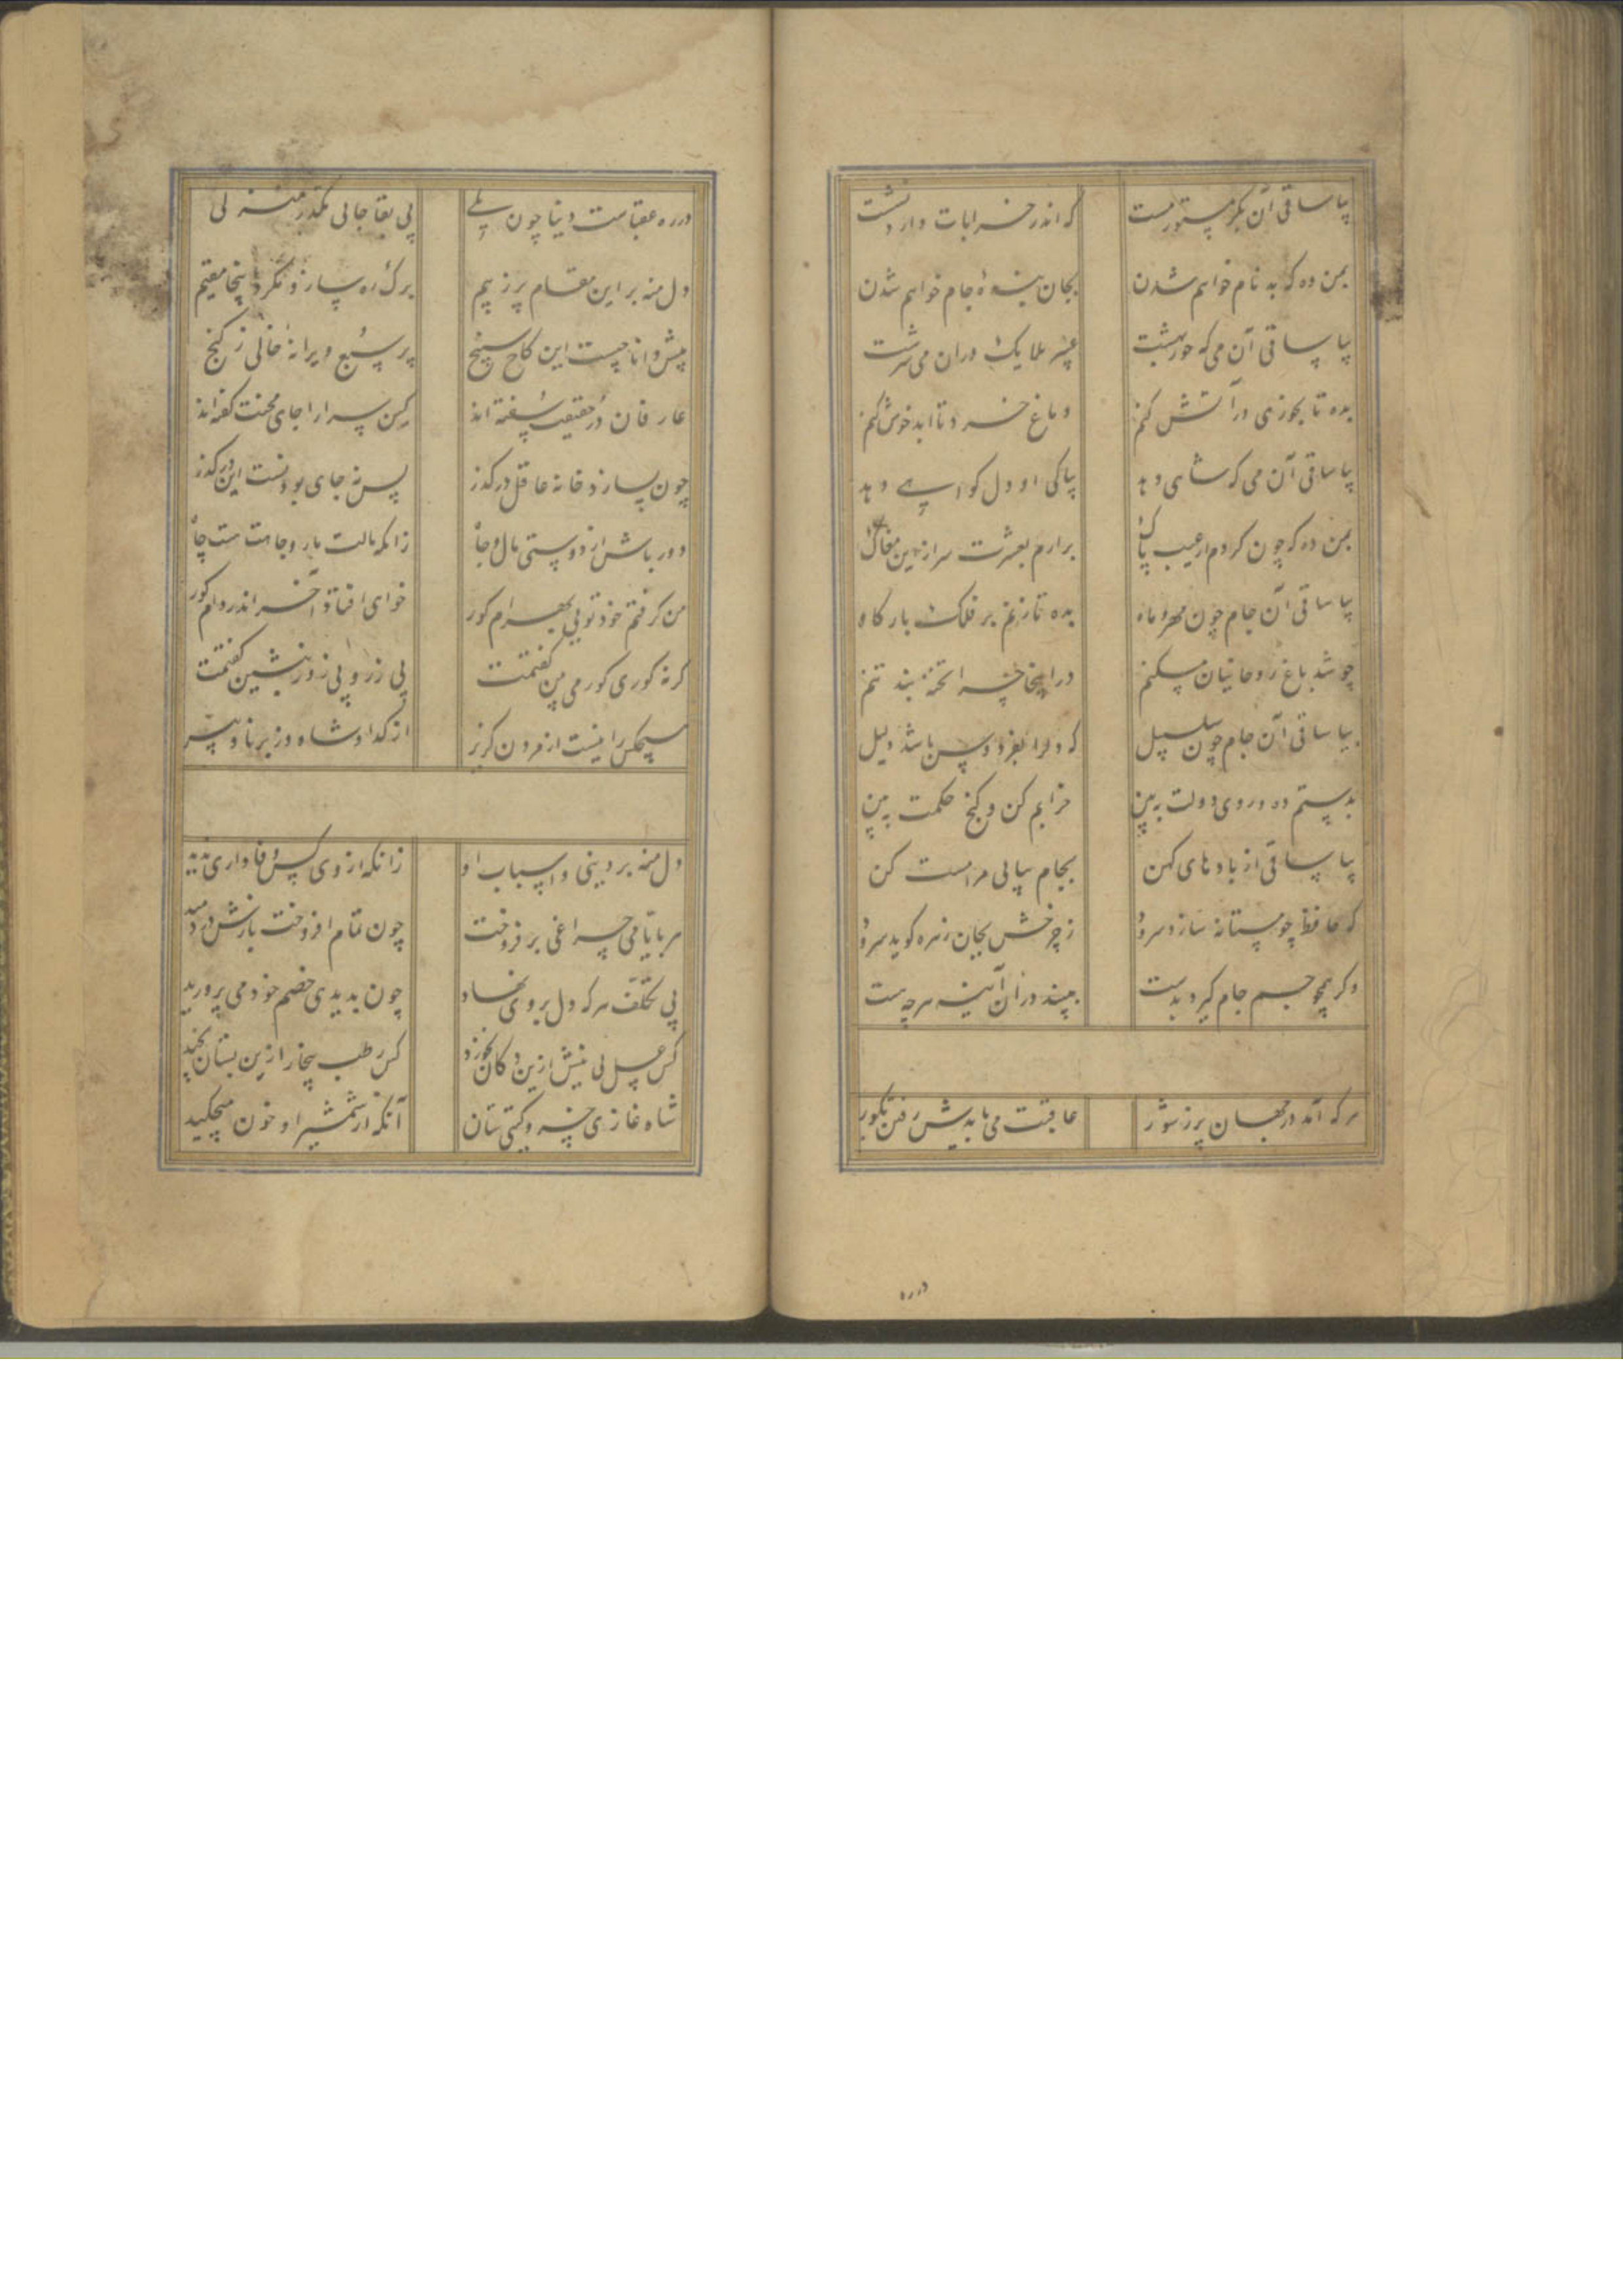 بیا ساقی آن بکر مستور مست که اندر خرابات دارد نشست
بمن ده که بد نام خواهم شدن بجان بندهٔ جام خواهم شدن
بیا ساقی آن می که حور بهشت عبیر ملایک دران می سرشت
بده تا بخوری در آتش کنم دماغ خرد تا ابد خوش کنم
بیا ساقی آن می که شاهی دهد بپاکی او دل کواهی دهد
بمن ده که چون کردم از عیب پاک برارم بعشرت سر ازین مغاک
بیا ساقی آن جام چون مهر و ماه بده تا زنم بر فلک بارکاه
چو شد باغ روحانیان مسکنم در اینجا چرا تخته بند تنم
بیا ساقی آن جام چون سلسبیل که دلرا بفردوس باشد دلیل
بدستم ده و روی دولت ببین خرابم کن و کنج حکمت ببین
بیا ساقی از بادهای کهن بجام پیاپی مرا مست کن
که حافظ چو مستانه سازد سرود ز چرخش بجان زهره کوید سرود
وکر همچو جم جام کیرد بدست ببیند در آن آینه هرچه هست
هر که آمد در جهان پر ز شور عاقبت می بایدش رفتن بکور
در ره
در ره عقباست دنیا چون پلی بی بقا جایی مکذر منزلی
دل منه بر این مقام پر ز بیم برک ره ساز و مکرد اینجا مقیم
پیش دانا چیست این کاخ سپنج ویرانهٔ خالی ز کنج
عارفان در حقیقت سفته اند کین سرا را جای محنت کفته اند
چون سازد خانه عاقل در کذر پس نه جای بودنست این در کذر
دور باش از دوستی مال و جاه زانکه مالت مار و جاهت هست چاه
من کرفتم خود تویی بهرام کور خوای افتاد آخر اندر دام کور
کرنه کوری کور می بین کفتمت بی زر و بی زور بنشین کفتمت
هیچکس را نیست از مردن کزیر از کدا و شاه وز برنا و پیر
دل منه بر دنیی و اسباب او زانکه از وی کس وفاداری ندید
هر بایامی چراغی بر فروخت چون تمام افروخت بازش در دمید
بی تکلف هر که دل بر وی نهاد چون بدیدی خصم خود می پرورید
کس عسل بی نیش ازین دکان نخورد کس رطب بیخار ازین بستان نچید
شاه غازی خسرو کیتی ستان آنکه از شمشیر او خون میچکید